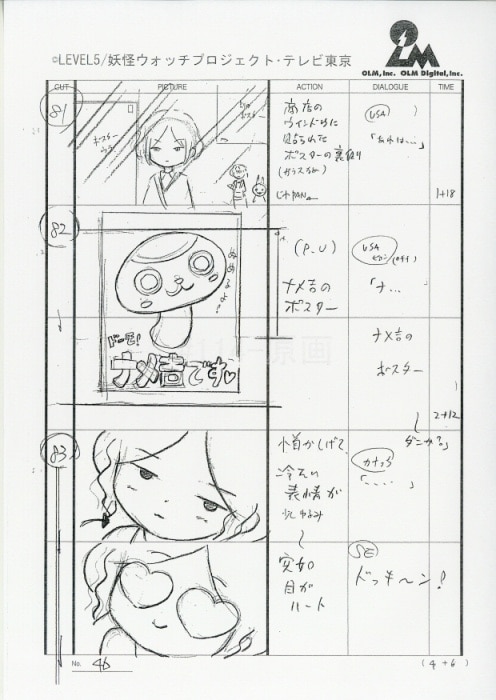 ©LEVEL5/妖怪ウォッチプロジェクト・テレビ東京
OLM
OLM, Inc. OLM Digital, Inc.
CUT PICTURE ACTION DIALOGUE TIME
81
ポスター
ポスター
商店の
ウインドウに
貼られた
ポスターの裏側
(ガラスなめ)
じわPAN
USA
「あれは…」
1+18
82
ドーモ!
ナメ吉です
(P.U)
ナメ吉の
ポスター
USA
「ナ…
ナメ吉の
ポスター
ダニか?」
2+12
83
冷たい
表情が
少しゆるみ
突如
目が
ハート
カナっち
「‥‥」
SE
ドッキ〜ン!
No. 46
(4+6)